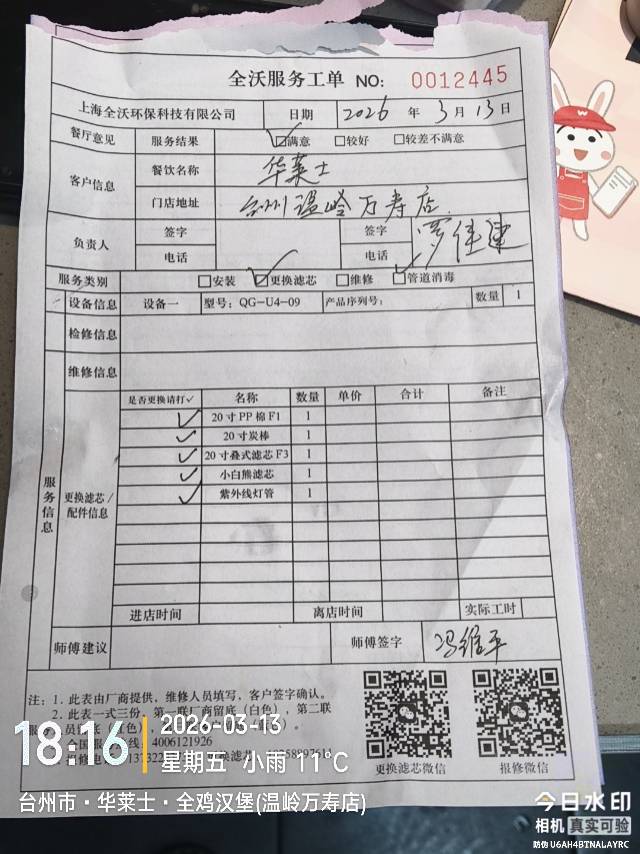 全沃服务工单 NO: 0012445
上海全沃环保科技有限公司 日期 2026 年 3 月 13 日
餐厅意见 服务结果 ☑满意 □较好 □较差不满意
客户信息 餐饮名称 华莱士
门店地址 台州温岭万寿店
负责人 签字 签字
电话 电话
服务类别 □安装 ☑更换滤芯 □维修 ☑管道消毒
设备信息 设备一 型号: QG-U4-09 产品序列号: 数量 1
检修信息
维修信息
服务信息
更换滤芯/配件信息
是否更换请打✓ 名称 数量 单价 合计 备注
✓ 20寸PP棉F1 1
✓ 20寸炭棒 1
✓ 20寸叠式滤芯F3 1
✓ 小白熊滤芯 1
✓ 紫外线灯管 1
进店时间 离店时间 实际工时
师傅建议 师傅签字 冯维平
注: 1. 此表由厂商提供，维修人员填写，客户签字确认。
2. 此表一式三份，第一联厂商留底（白色），第二联
4006121926
更换滤芯微信 报修微信
18:16 2026-03-13
星期五 小雨 11°C
台州市·华莱士·全鸡汉堡(温岭万寿店)
今日水印
相机 真实可验
防伪 U6AH4BTNALAYRC
W